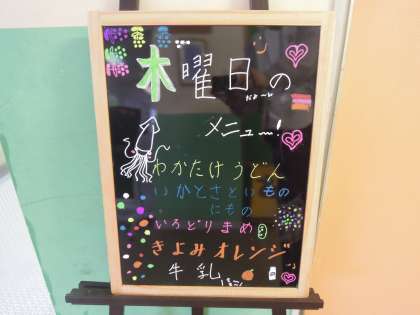 木曜日の
メニュー!
わかたけうどん
いかとさといもの
にもの
いろどりまめ
きよみオレンジ
牛乳